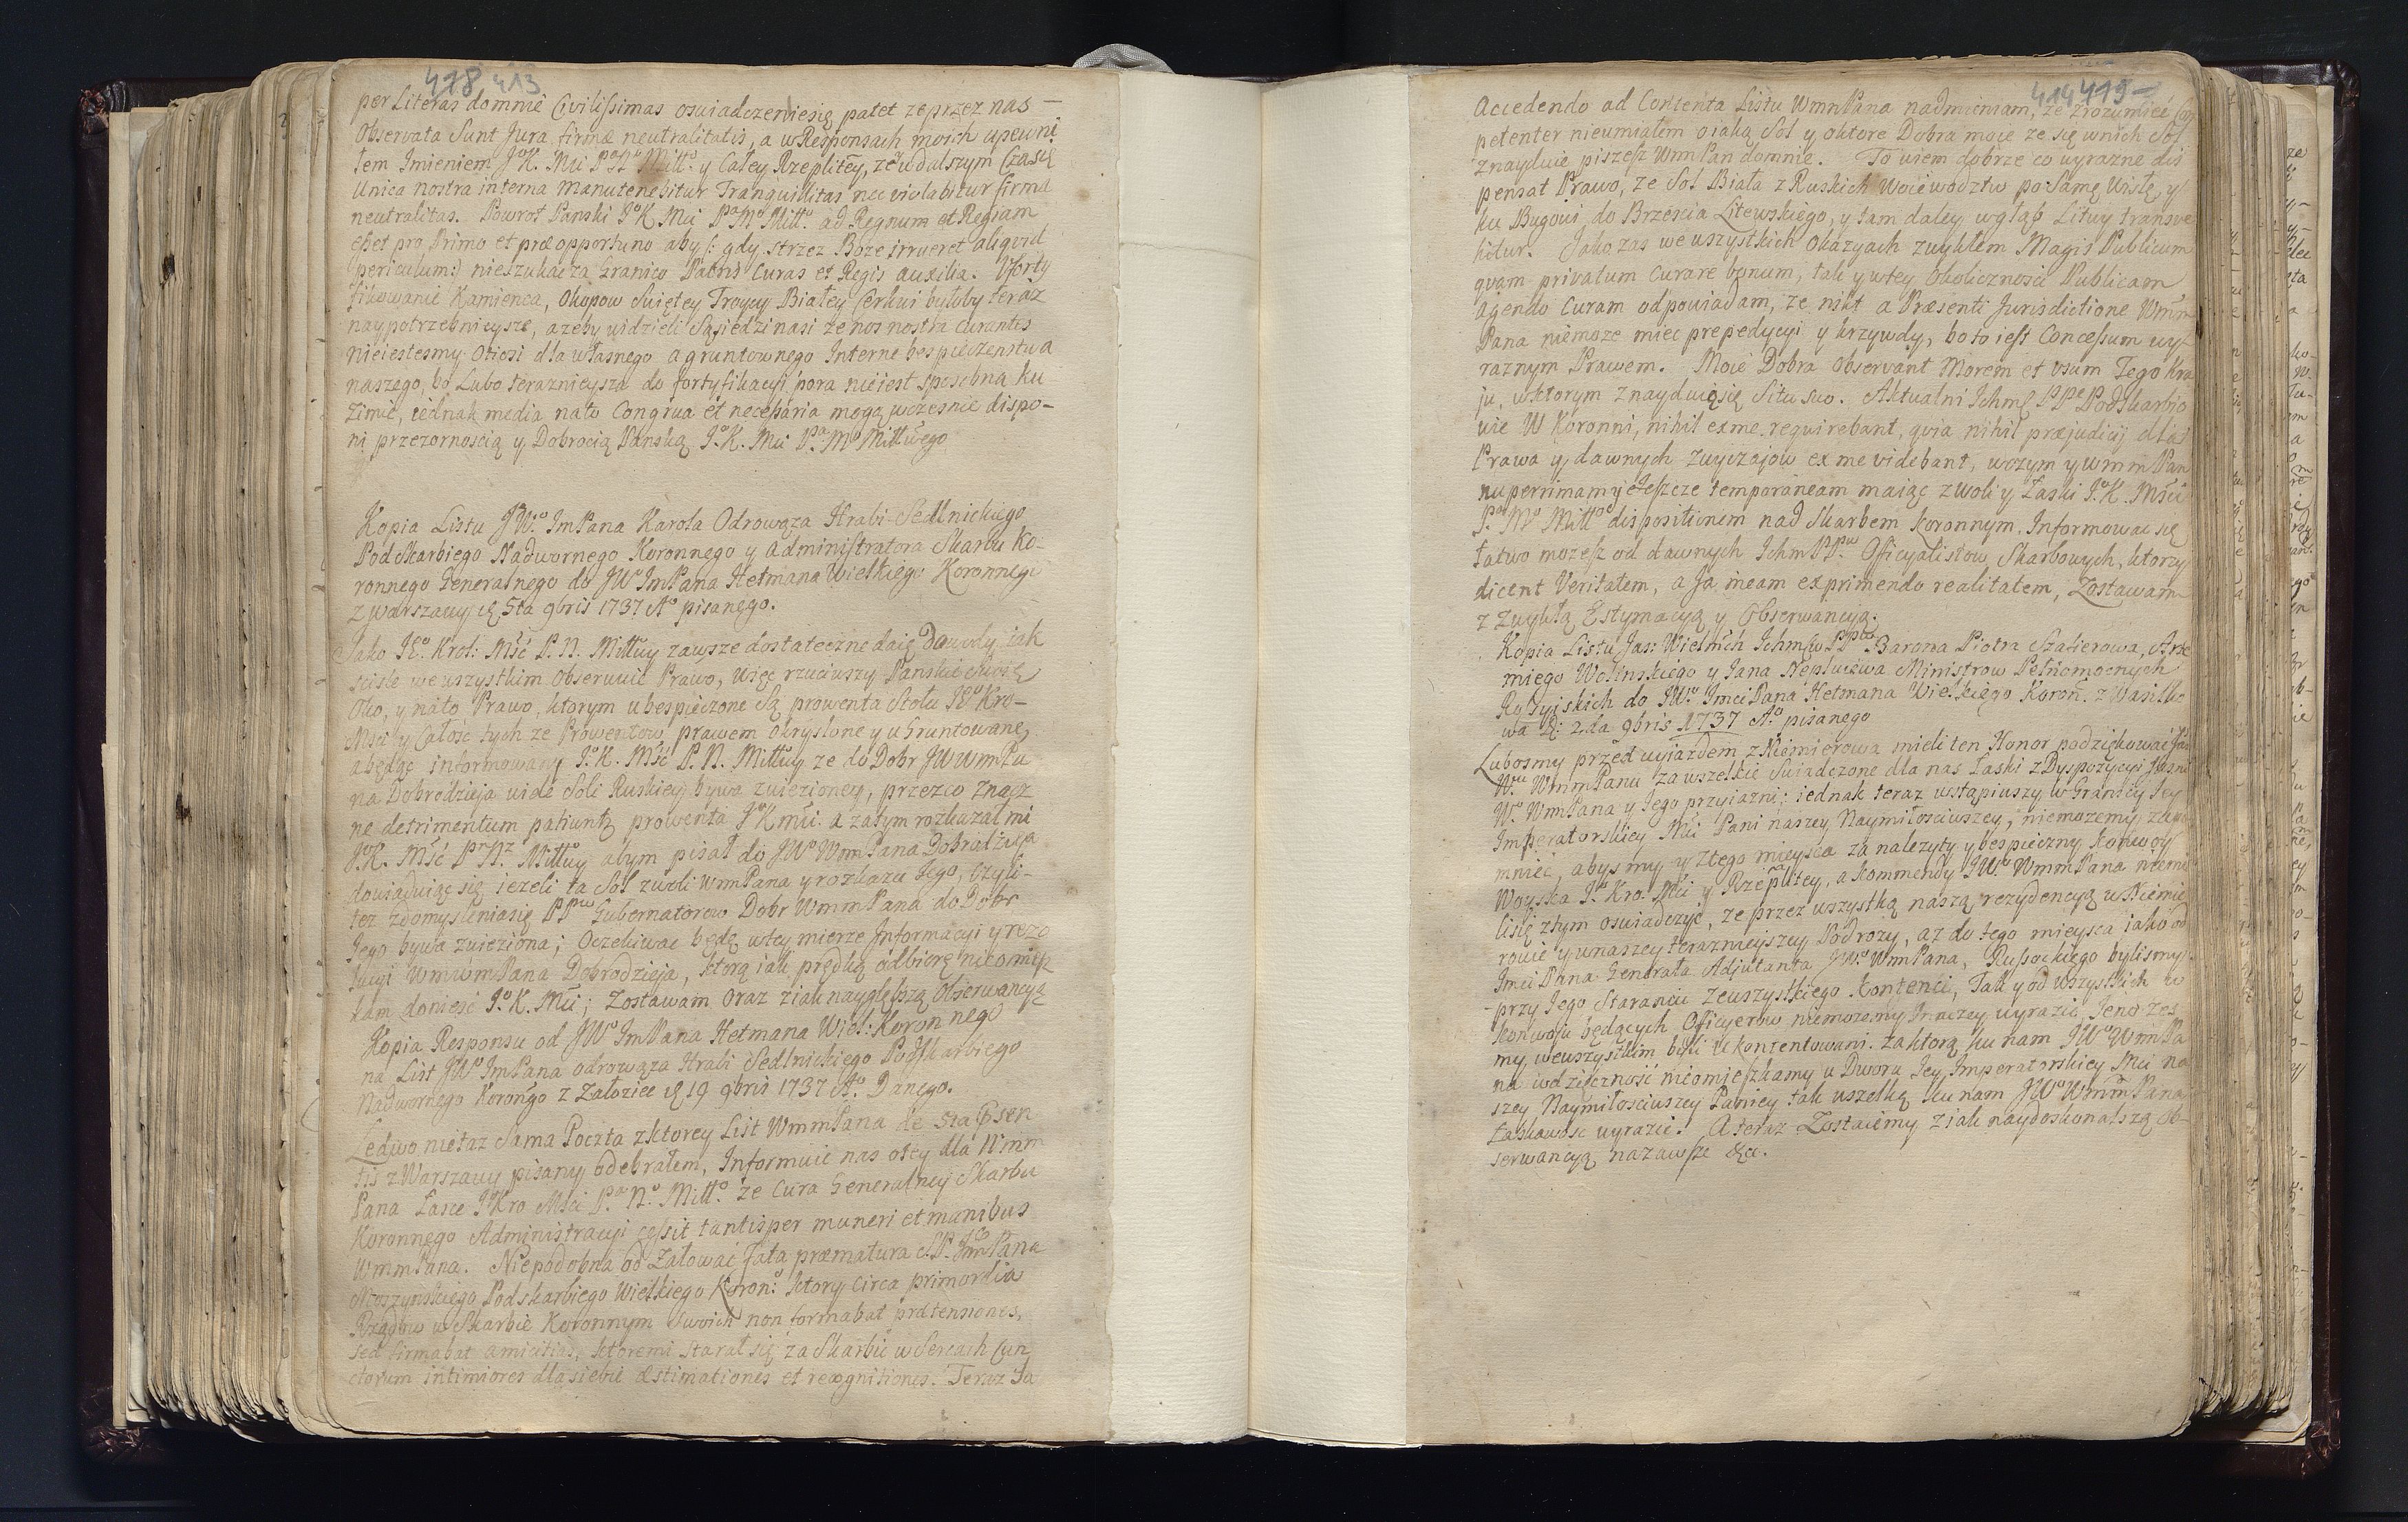 418 413
per Literas domnie Civilissimas osuiadczeniesię patet zeprzez nas —
Observata Sunt Jura firmæ neutralitatis, a wResponsach moich upewni
łem Imieniem J.K. Mci P.N. Mill.o y Całey Rzeplitey, ze w dalszym Czasie
Unica nostra interna Manutenebitur Tranquillitas nec violabitur firma
neutralitas. Powrot Panski J.K. Mci P.M. Mill.o ad Regnum et Regiam
esset pro Primo et præopportuno aby (: gdy strzez Boze irrueret aliqvod
periculum:) nieszukać za Granico Patris Curas et Regis auxilia. Uforty
fikowanie Kamienca, Okopow Swiętey Troycy Białey Cerkwi byłoby teraz
naypotrzebnieysze, azeby widzieli Sąsiedzi nasi ze nos nostra curantes
nieiestesmy Otiosi dla własnego a gruntownego Interne bespieczenstwa
naszego, bo Lubo teraznieysza do fortyfikacyi pora nieiest sposobna ku
Zimie, iednak media nato Congrua et necessaria mogą wczesnie dispo-
ni przezornoscią y Dobrocią Panską J.K. Mci P. M. Miłłwego

Kopia Listu JW.o ImPana Karola Odrowąza Hrabi Sedlnickiego
PodSkarbiego Nadwornego Koronnego y Administratora Skarbu Ko-
ronnego Generalnego do JWo ImPana Hetmana Wielkiego Koronnego
z Warszawy d. 5ta 9bris 1737 Ao pisanego.
Jako JEo Krol: Mść P. N. Miłłwy zawsze dostateczne daie Dowody, iak
scisle we wszystkim Observuie Prawo, więc rzuciwszy Panskie swoie
Oko, y nato Prawo, ktorym ubespieczone są prowenta Stołu JEo Kro-
Mści y Całość tych ze Prowentow prawem Okryslone y uGruntowane,
abędąc informowany J.K. Mść P. N. Miłłwy ze do Dobr JW WmPa
na Dobrodzieja wiele Soli Ruskiey bywa zwiezioney, przezco Znacz
ne detrimentum patiuntr prowenta JKmści. a zatym rozkazał mi
J.K. Mść P. N. Miłłwy abym pisał do JWo WmPana Dobrodzieja
dowiaduiąc się iezeli ta Sol zwoli WmPana y rozkazu Jego, Czyli-
tez zdomysleniasię PPw Gubernatorow Dobr WmmPana do Dobr
Jego bywa zwieziona; Oczekiwać będę wtey mierze Informacyi y rezo
lucyi WmwmPana Dobrodzieja, ktorą iak prędką odbiorę nieomie
kam doniesć J.K. Mci; Zostawam Oraz ziak naygłębszą Obserwancyą
Kopia Responsu od JWo ImPana Hetmana Wiel: Koronnego
na List JWo ImPana odrowąza Hrabi Sedlnickiego PodSkarbiego
Nadwornego Korongo z Załoziec d. 19 9bris 1737 Ao Danego.
Ledwo nietaz Sama Poczta zktorey List WmmPana de 5ta Psen
tis z Warszawy pisany odebrałem, Informuie nas otey dla Wmm
Pana Łasce JKro Mści P. N. Mill.o ze Cura Generalney Skarbu
Koronnego Administracyi cessit tantisper muneri et manibus
WmmPana. Niepodobna od Załować fata præmatura S.P. JmPana
Moszynskiego Podskarbiego Wielkiego Koron: ktory Circa primordia
Rządow w Skarbie Koronnym Swoich non formabat prætensiones,
sed firmabat amicitias, ktoremi starał się za Skarbie w Sercach Cun
ctorum intimiores dla siebie Æstimationes et recognitiones. Teraz Ja
414 419
Accedendo ad Contenta Listu WmnPana nadmieniam, ze zrozumieć Com
petenter nieumiałem oiaką Sol y oktore Dobra moie ze się wnich Sol
znayduie piszesz WmPan domnie. To wiem dobrze co wyrazne dis
pensat Prawo, ze Sol Biała z Ruskich Woiewodztw po Samę Wisłę, y
ku Bugowi do Brzescia Litewskiego, y tam daley wgłąb Litwy transve
hitur. Jako zas we wszystkich Okazyach zwykłem Magis Publicum
qvam privatum Curare bonum, tak y wtey Okoliczności Publicam
agendo Curam odpowiadam, ze nikt a Præsenti Jurisdictione Wmm
Pana niemoze miec prepedycyi y krzywdy, bo to iest Concessum wy-
raznym Prawem. Moie Dobra Observant Morem et vsum Tego Kra
ju, wktorym Znayduiąsię Situ suo. Aktualni Ichmść PPe PodSkarbio
wie W Koronni, nihil ex me requirebant, qvia nihil præjudicij dla
Prawa y dawnych zwyczajow ex me videbant, wczym y wmm Pan
nuperrimam y ieszcze temporaneam maiąc z woli y Łaski J.K. Mści
P. M. Mill.o dispositionem nad Skarbem Koronnym, Informować się
łatwo mozesz od dawnych Ichm PPw Officyalistow Skarbowych, ktorzy
dicent Veritatem, a Ja meam exprimendo realitatem, Zostawam
z Zwykłą Estymacyą y Obserwancyą.
Kopia Listu Jas: Wielmch Ichmsw PPow Barona Piotra Szafierowa, Arte
miego Wolinskiego y Jana Neplujewa Ministrow Pełnomocnych
Rossyiskich do JWo Imci Pana Hetmana Wielkiego Koron. z Wasilko
wa D: 2da 9bris 1737 Ao pisanego
Lubosmy przed wyiazdem z Niemierowa mieli ten Honor podziękować Jas
W. WmmPanu za wszelkie Swiadczone dla nas Łaski z Dyspozycyi Jasni
Wo WmPana y Jego przyiazni; iednak teraz wstąpiwszy w Granicy Jey
Imperatorskiey Mci Pani naszey Naymiłosciwszey, niemozemy zapo
mnieć, abysmy y Ztego mieysca za nalezyty y bespieczny Konwoy
Woyska J. Kro. Mci y Rzeplitey, a Kommendy JWo WmmPana niemie
lisię ztym oswiadczyć, ze przez wszystką naszą rezydencyą w Niemie
rowie y wnaszey teraznieyszey Podrozy, az do tego mieysca iako od
Imci Pana Generała Adjutanta JWo WmPana, Russockiego bylismy
przy Jego Staraniu zewszystkiego Kontenci, Tak y od wszystkich w
konwoju będących Officyerow niemozemy Inaczey wyrazić, Jeno zes
my wewszystkim byli Ukontentowani. za ktorą ku nam JWo WmPa
na wdzięczność nieomieszkamy u Dworu Jey Imperatorskiey Mci na
szey Naymiłosciwszey Paniey tak wszelką ku nam JWo WmmPana
Łaskawosc wyrazić. A teraz Zostaiemy z iak naydoskonalszą Ob-
serwancyą nazawsze &c.